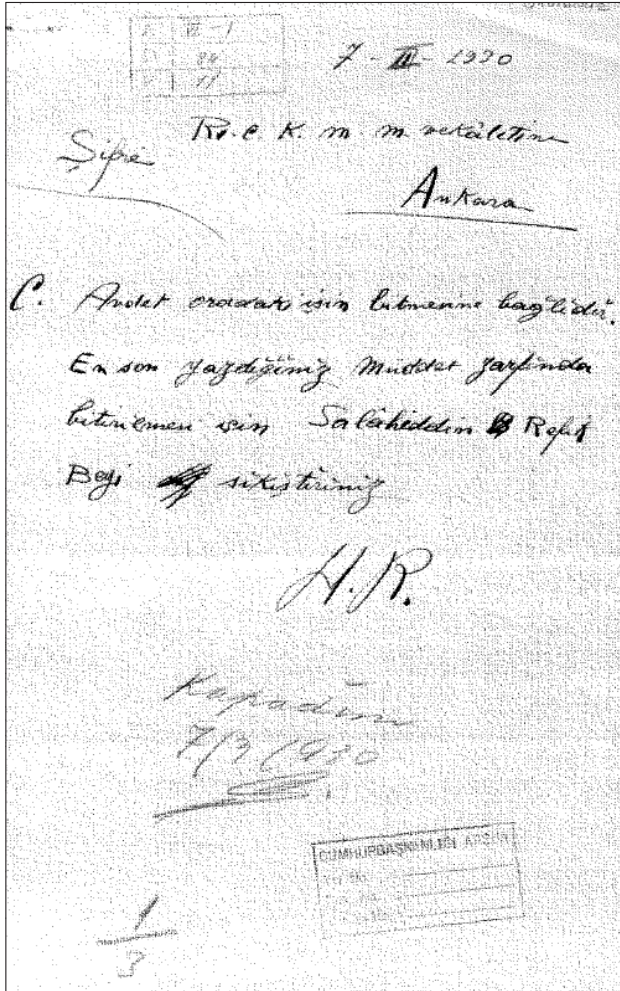 VI-1
7-III-1930
Rs. C. K. m. m. vekâletine
Şifre
Ankara
C. Avdet oradaki işin bitmesine bağlıdır.
En son yazdığınız müddet zarfında
bitirilmesi için Salâheddin Refik
Beyi sıkıştırınız
H.R.
Kapadım
7/3/930
CUMHURBAŞKANLIĞI ARŞİVİ
1
3